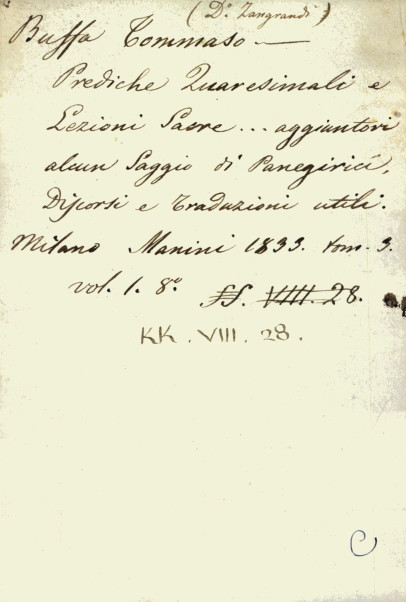 ( D.º Zangrandi )
Buffa Tommaso —
Prediche Quaresimali e
Lezioni Sacre... aggiuntovi
alcun Saggio di Panegirici,
Discorsi e Traduzioni utili.
Milano Manini 1833. tom. 3.
vol. 1. 8.º ff. VIII. 28.
KK. VIII. 28.
C